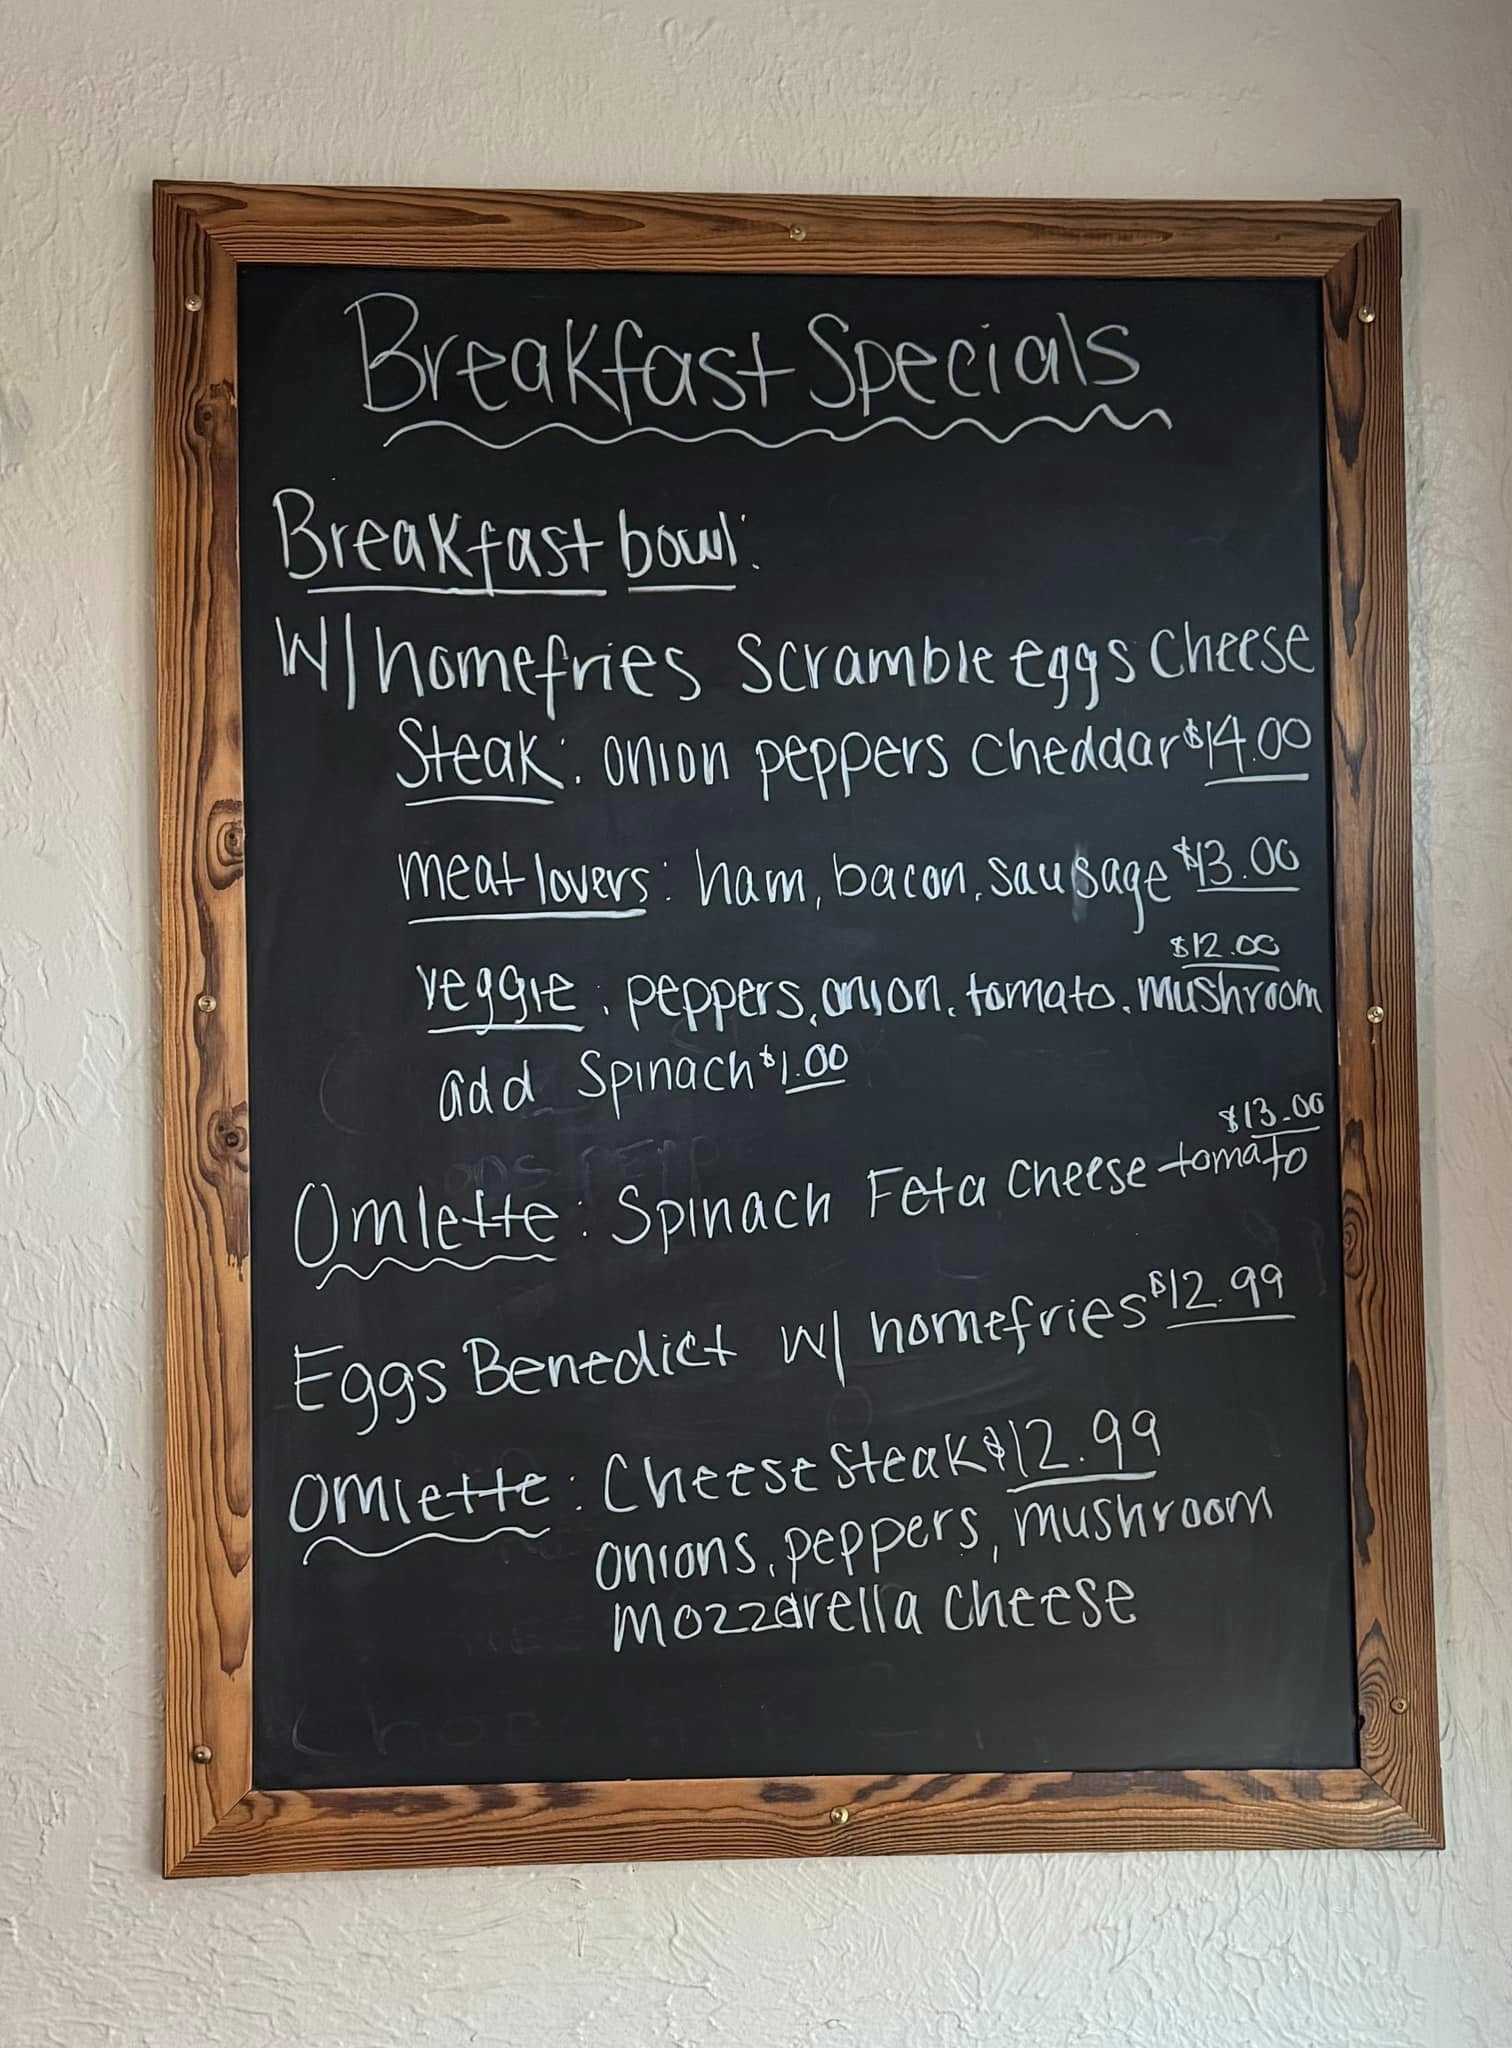 Breakfast Specials
Breakfast bowl:
W/ homefries scramble eggs cheese
Steak: onion peppers cheddar $14.00
meat lovers: ham, bacon, sausage $13.00
$12.00
veggie: peppers, onion, tomato, mushroom
add Spinach $1.00
$13.00
Omlette: Spinach Feta cheese tomato
Eggs Benedict w/ homefries $12.99
Omlette: Cheese steak $12.99
onions, peppers, mushroom
mozzarella cheese